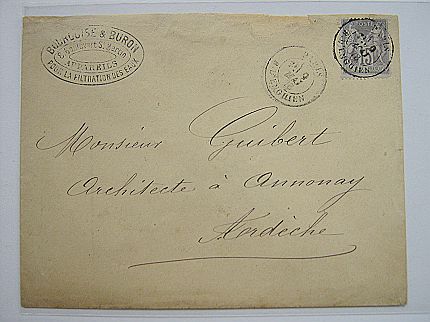 BOURGOISE & BURON
8, Boulevart St Martin
APPAREILS
POUR LA FILTRATION DES EAUX
PARIS
15
Monsieur Guibert
Architecte à Annonay
Ardèche